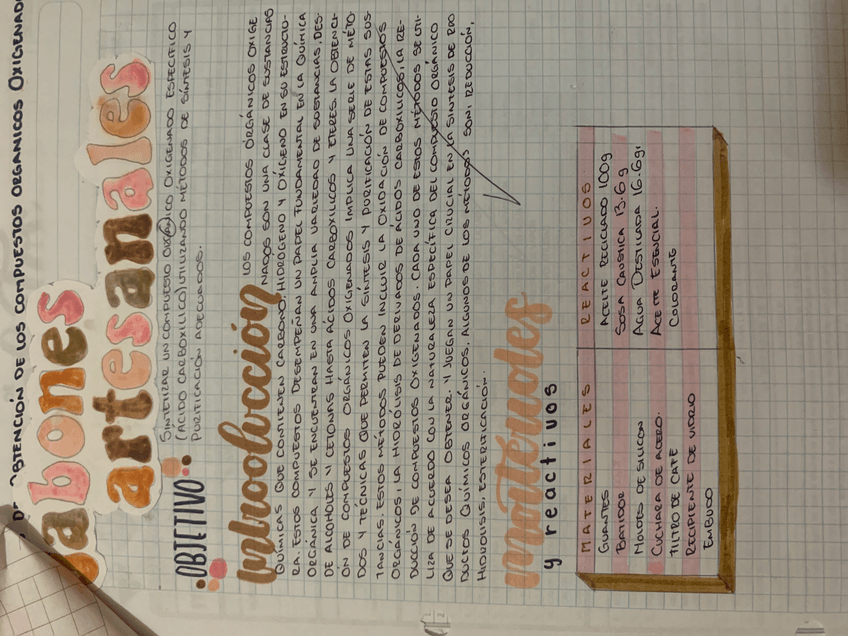 DE OBTENCIÓN DE LOS COMPUESTOS ORGANICOS OXIGENADO
abones
artesanales
OBJETIVO:
SINTETIZAR UN COMPUESTO ORGANICO OXIGENADO ESPECIFICO
(ACIDO CARBOXILICO) UTILIZANDO MÉTODOS DE SÍNTESIS Y
PURIFICACIÓN ADECUADOS.
Introducción
LOS COMPUESTOS ÓRGÁNICOS OXIGE
NADOS SON UNA CLASE DE SUSTANCIAS
QUÍMICAS QUE CONTIENEN CARBONO, HIDRÓGENO Y OXÍGENO EN SU ESTRUCTU-
RA. ESTOS COMPUESTOS DESEMPEÑAN UN PAPEL FUNDAMENTAL EN LA QUÍMICA
ORGÁNICA Y SE ENCUENTRAN EN UNA AMPLIA VARIEDAD DE SUSTANCIAS, DES-
DE ALCOHOLES Y CETONAS HASTA ÁCIDOS CARBOXILICOS Y ETERES. LA OBTENCI-
ÓN DE COMPUESTOS ORGÁNICOS OXIGENADOS IMPLICA UNA SERIE DE MÉTO-
DOS Y TÉCNICAS QUE PERMITEN LA SÍNTESIS Y PURIFICACIÓN DE ESTAS SUS-
TANCIAS. ESTOS MÉTODOS PUEDEN INCLUIR LA OXIDACIÓN DE COMPUESTOS
ORGÁNICOS, LA HIDRÓLISIS DE DERIVADOS DE ÁCIDOS CARBOXILICOS, LA RE-
DUCCIÓN DE COMPUESTOS OXIGENADOS. CADA UNO DE ESTOS MÉTODOS SE UTI-
LIZA DE ACUERDO CON LA NATURALEZA ESPECÍFICA DEL COMPUESTO ORGÁNICO
QUE SE DESEA OBTENER. Y JUEGAN UN PAPEL CRUCIAL EN LA SÍNTESIS DE PRO
DUCTOS QUÍMICOS ORGÁNICOS. ALGUNOS DE LOS MÉTODOS SON; REDUCCIÓN,
HIDROLISIS, ESTERIFICACIÓN.
materiales
y reactivos
MATERIALES
GUANTES
BATIDOR
MOLDES DE SILICON
CUCHARA DE ACERO.
FILTRO DE CAFÉ
RECIPIENTE DE VIDRIO
EMBUDO
REACTIVOS
ACEITE RECICLADO 100g
SOSA CAUSTICA 13.6g
AGUA DESTILADA 16.6gr
ACEITE ESENCIAL.
COLORANTE